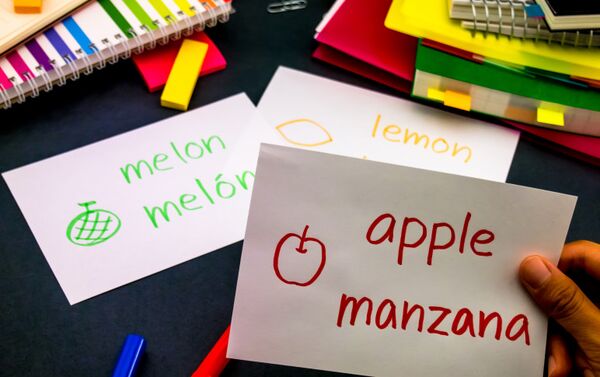 melon
melón
lemon
apple
manzana